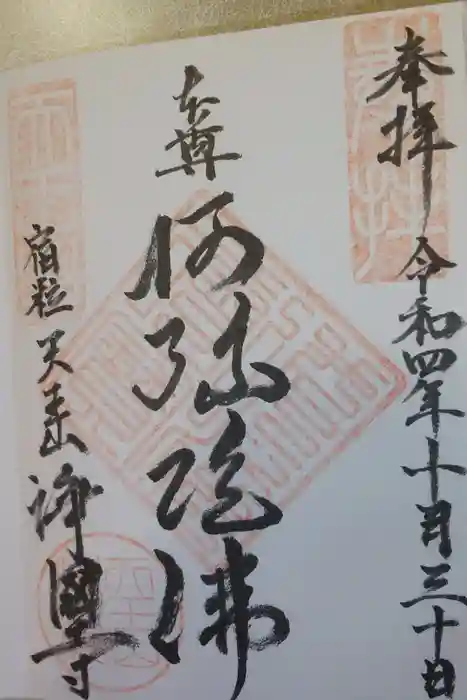 奉拝 令和四年十月三十日
本尊
阿弥陀佛
宿粒 天 山
浄圓寺